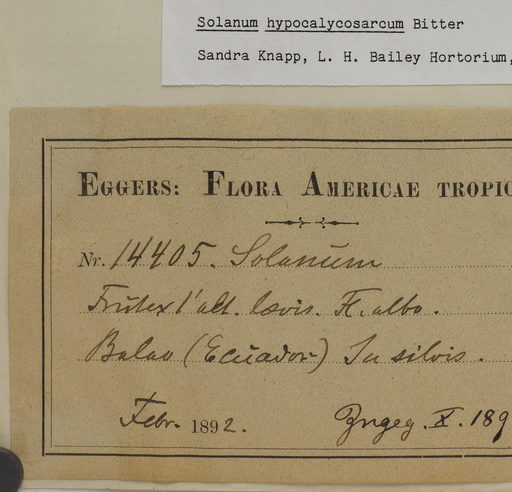 Solanum hypocalycosarcum Bitter
Sandra Knapp, L. H. Bailey Hortorium,
EGGERS: FLORA AMERICAE TROPIC
Nr. 14405. Solanum
Frutex 1' alt. lævis. Fl. albo.
Balao (Ecuador) In silvis.
Febr. 1892. X. 189